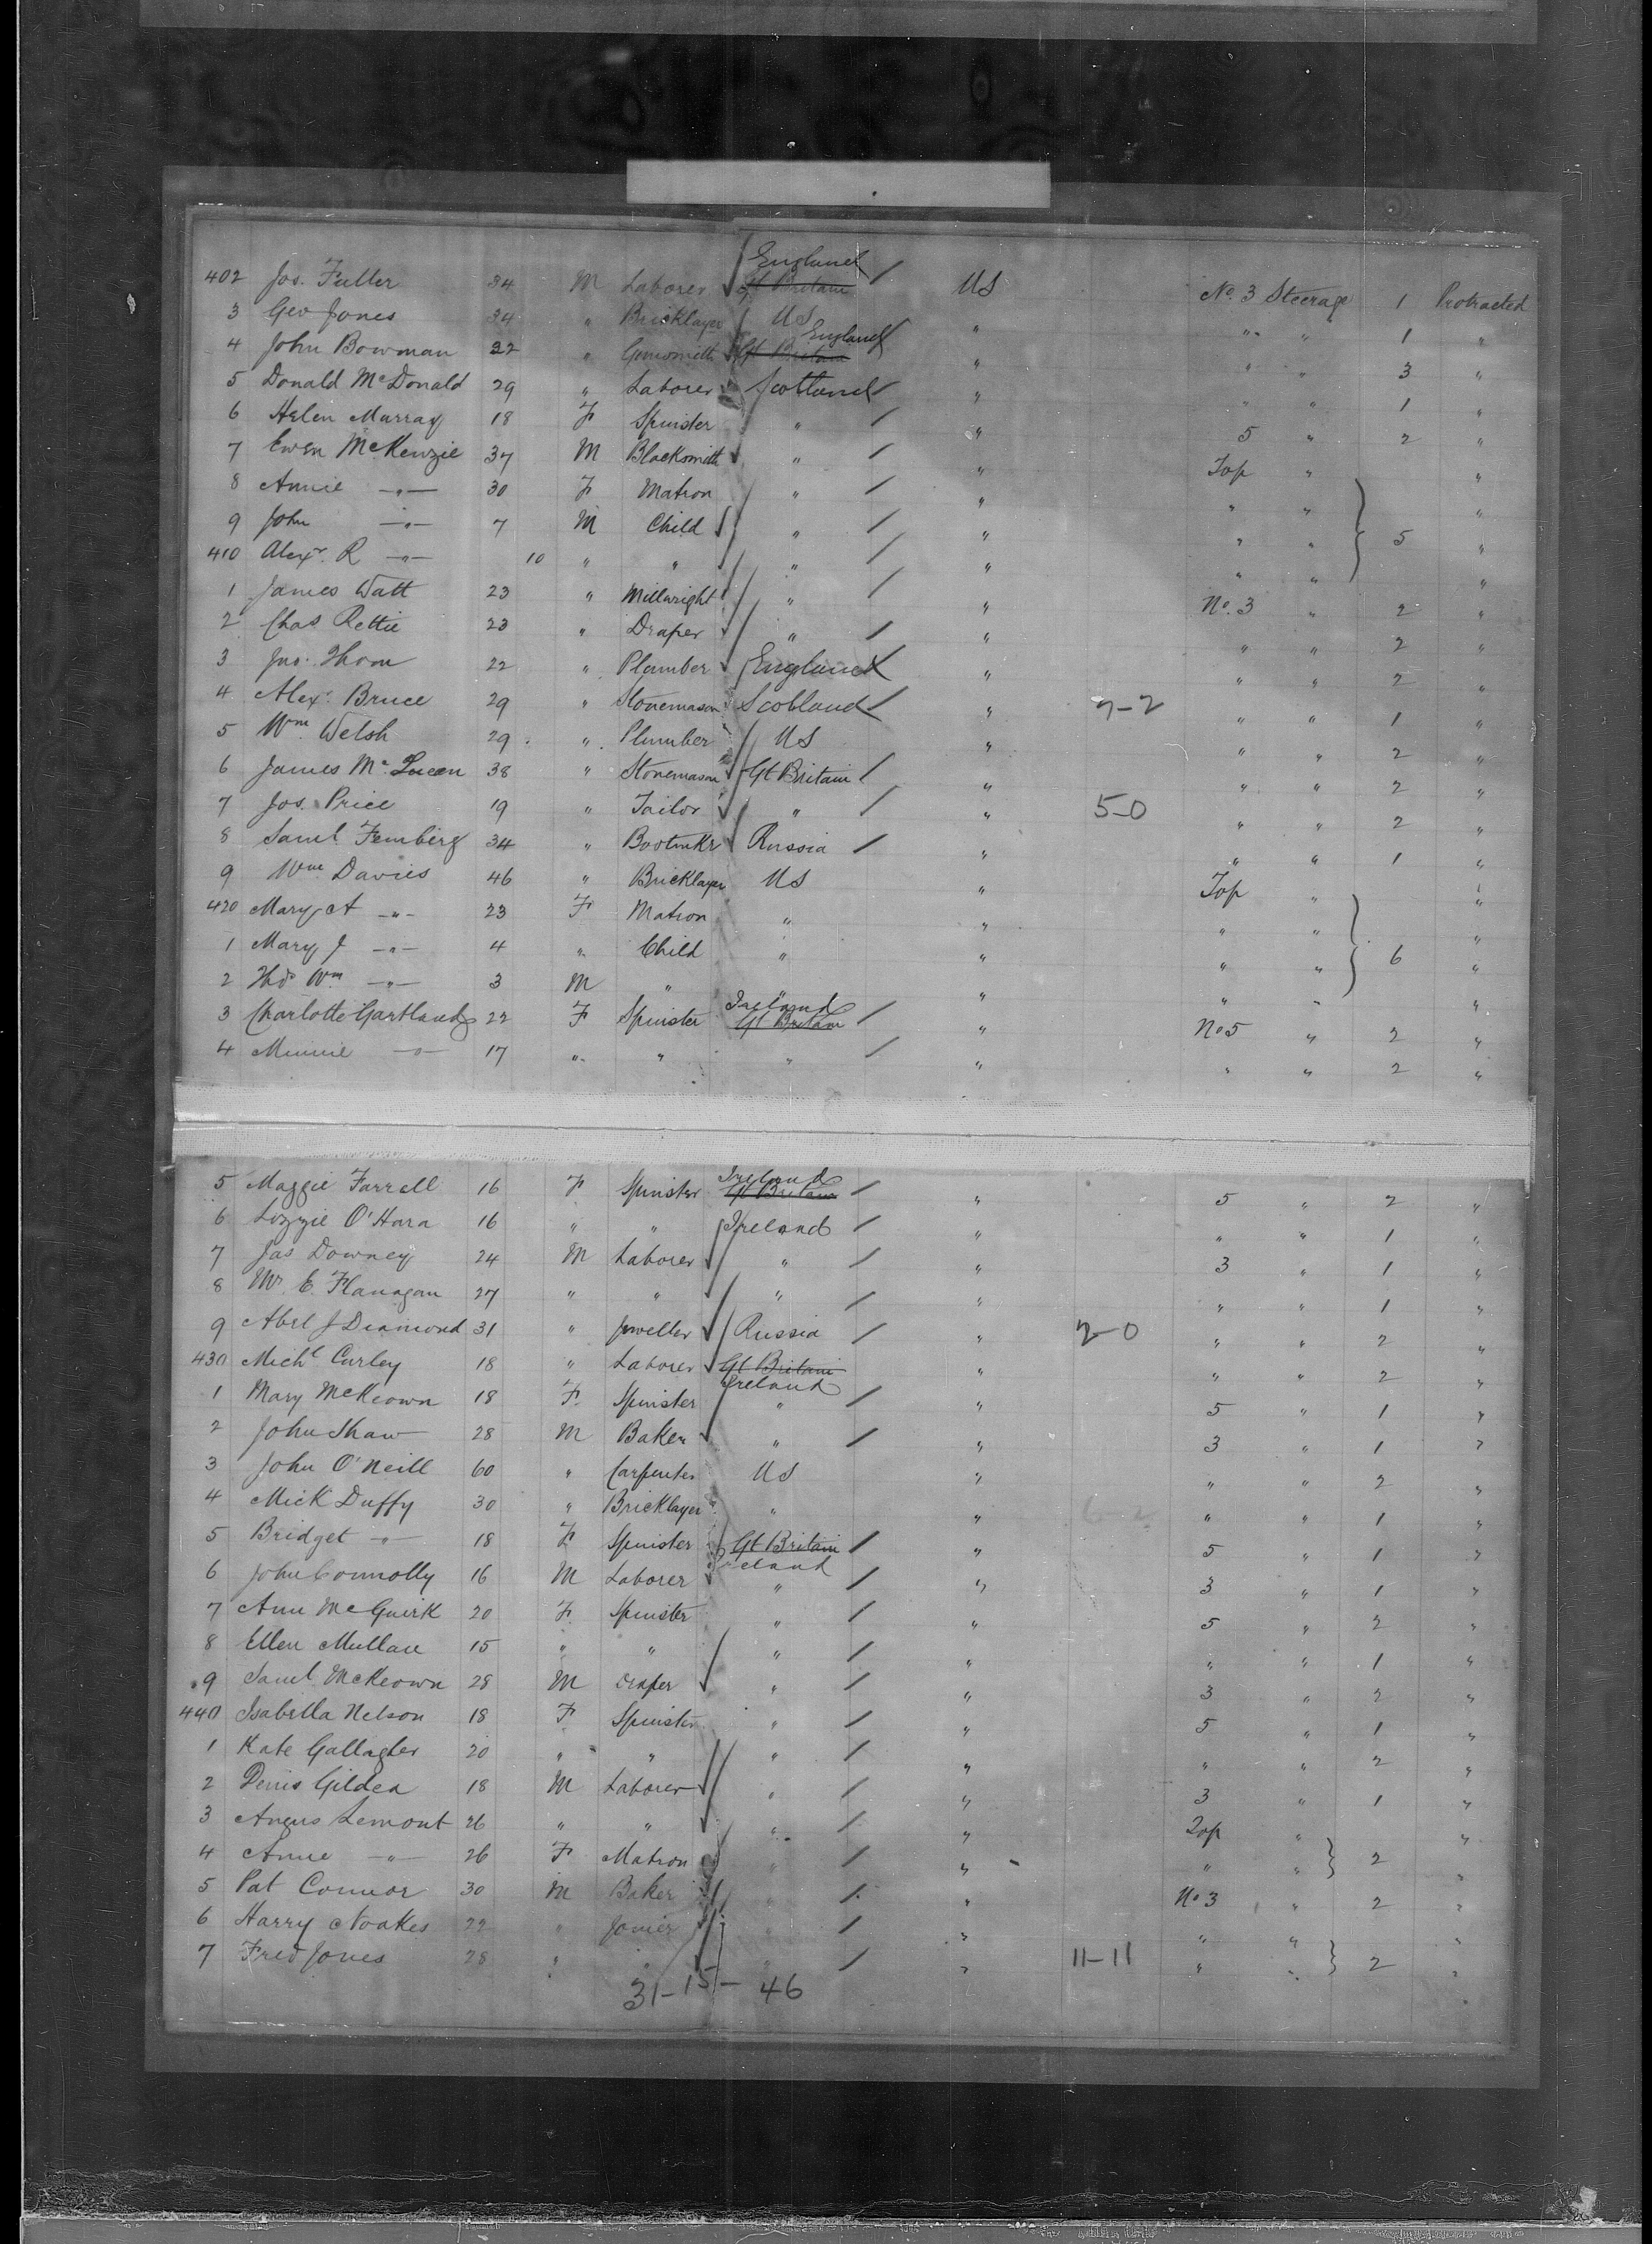 402 Jos. Fuller 34 M Laborer England Gt Britain US No. 3 Steerage 1 Protracted
3 Geo Jones 34 " Bricklayer US " " " 1 "
4 John Bowman 22 " England Gt Britain " " " 3 "
5 Donald McDonald 29 " Laborer Scotland " " " 1 "
6 Helen Murray 18 F Spinster " " 5 " 2 "
7 Ewen McKenzie 37 M Blacksmith " " Top " "
8 Annie -"- 30 F Matron " " " " "
9 John -"- 7 M Child " " " " 5 "
410 Alexr. R -"- 10 " " " " " " "
1 James Watt 23 " Millwright " " No. 3 " 2 "
2 Chas Rettie 23 " Draper " " " " 2 "
3 Jno. Thom 22 " Plumber England " " " 2 "
4 Alex. Bruce 29 " Stonemason Scotland " 7-2 " " 1 "
5 Wm. Welsh 29 " Plumber US " " " 2 "
6 James Mc 38 " Stonemason Gt Britain " " " 2 "
7 Jos. Price 19 " Tailor " " 5-0 " " 2 "
8 Saml. Femberg 34 " Bootmkr Russia " " " 1 "
9 Wm Davies 46 " Bricklayer US " Top " "
420 Mary A -"- 23 F Matron " " " " "
1 Mary J -"- 4 " Child " " " " 6 "
2 Thos Wm -"- 3 M " " " " " "
3 Charlotte Gartland 22 F Spinster Ireland Gt Britain " No 5 " 2 "
4 Minnie -"- 17 " " " " " " 2 "
5 Maggie Farrell 16 F Spinster Ireland Gt Britain " 5 " 2 "
6 Lizzie O'Hara 16 " " Ireland " " " 1 "
7 Jas Downey 24 M Laborer " " 3 " 1 "
8 E. Flanagan 27 " " " " " " 1 "
9 Abel J Diamond 31 " Jeweller Russia " 2-0 " " 2 "
430 Michl Curley 18 " Laborer Gt Britain Ireland " " " 2 "
1 Mary McKeown 18 F Spinster " " 5 " 1 "
2 John Shaw 28 M Baker " " 3 " 1 "
3 John O'Neill 60 " Carpenter US " " " 2 "
4 Mick Duffy 30 " Bricklayer " " " " 1 "
5 Bridget -"- 18 F Spinster Gt Britain Ireland " 5 " 1 "
6 John Connolly 16 M Laborer " " 3 " 1 "
7 Ann McGuirk 20 F Spinster " " 5 " 2 "
8 Ellen Mullan 15 " " " " " " 1 "
9 Saml. McKeown 28 M Draper " " 3 " 2 "
440 Isabella Nelson 18 F Spinster " " 5 " 1 "
1 Kate Gallagher 20 " " " " " " 2 "
2 Denis Gildea 18 M Laborer " " 3 " 1 "
3 Angus Lemont 26 " " " " Top " "
4 Annie -"- 26 F Matron " " " " 2 "
5 Pat Connor 30 M Baker " " No 3 " 2 "
6 Harry Noakes 22 " Joiner " " " " "
7 Fred Jones 28 " " " " 11-11 " " 2 "
31-15-46